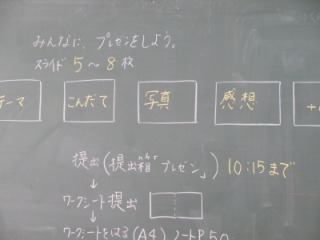 みんなに、プレゼンをしよう。
スライド 5～8枚
テーマ こんだて 写真 感想
提出(「提出箱 プレゼン」) 10:15まで
↓
ワークシート提出
↓
ワークシートをはる(A4) ノートP.50